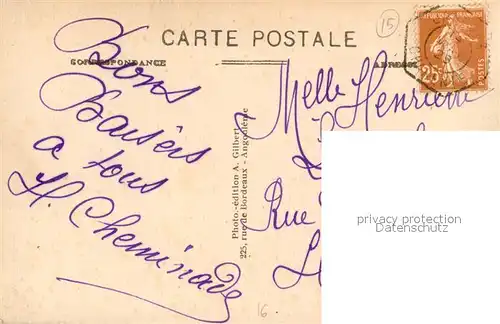 15
CARTE POSTALE
CORRESPONDANCE
ADRESSE
RÉPUBLIQUE FRANÇAISE
25c
POSTES
Bons
Baisers
a tous
H. Cheminade
Photo-édition A. Gilbert
225, rue de Bordeaux - Angoulême
Melle Henriette
Rue
privacy protection
Datenschutz
16